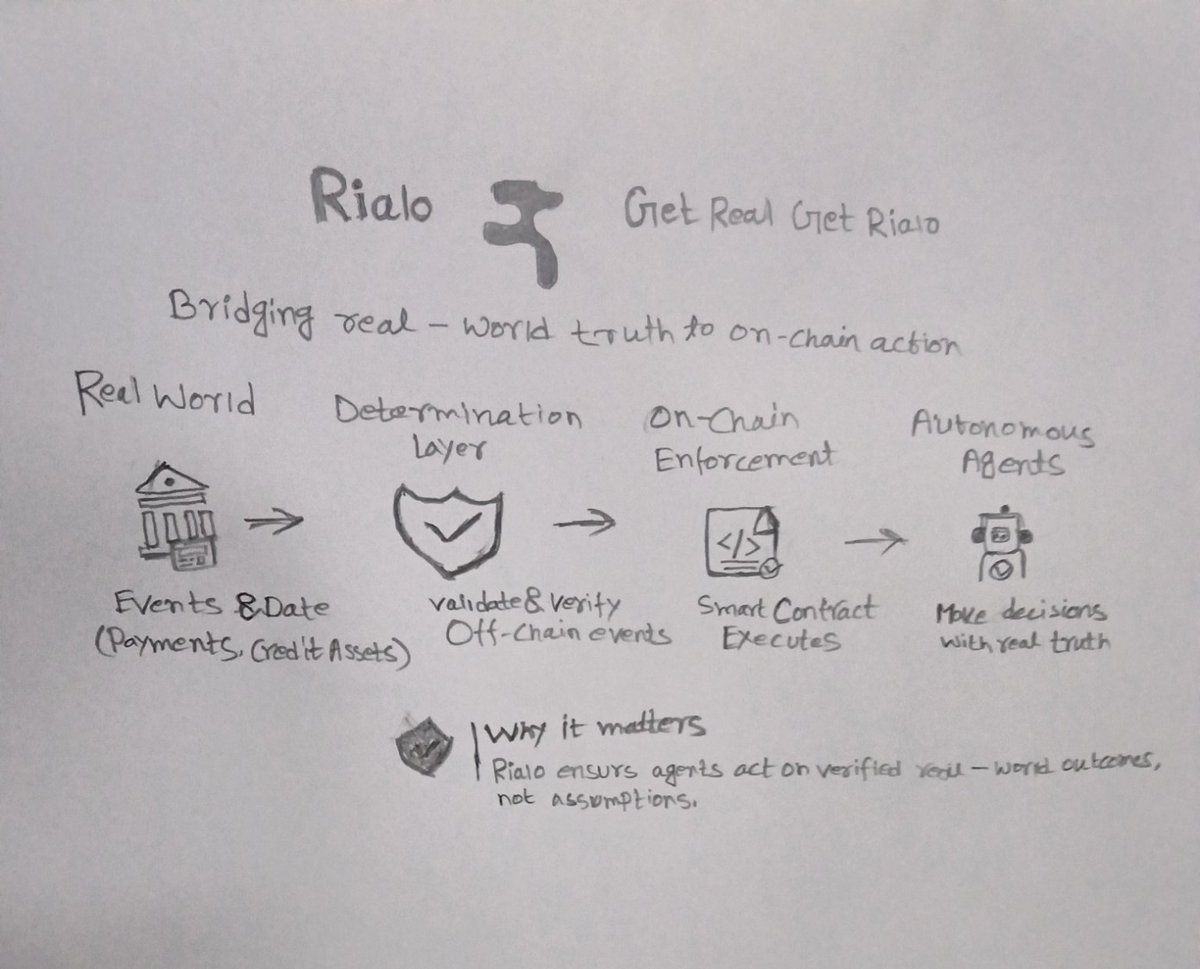 Rialo
Get Real Get Rialo
Bridging real - world truth to on-chain action
Real World
Determination
Layer
On-Chain
Enforcement
Autonomous
Agents
</>
Events & Date
(Payments, Credit Assets)
validate & verify
Off-chain events
Smart Contract
Executes
Make decisions
with real truth
Why it matters
Rialo ensurs agents act on verified real - world outcomes,
not assumptions.